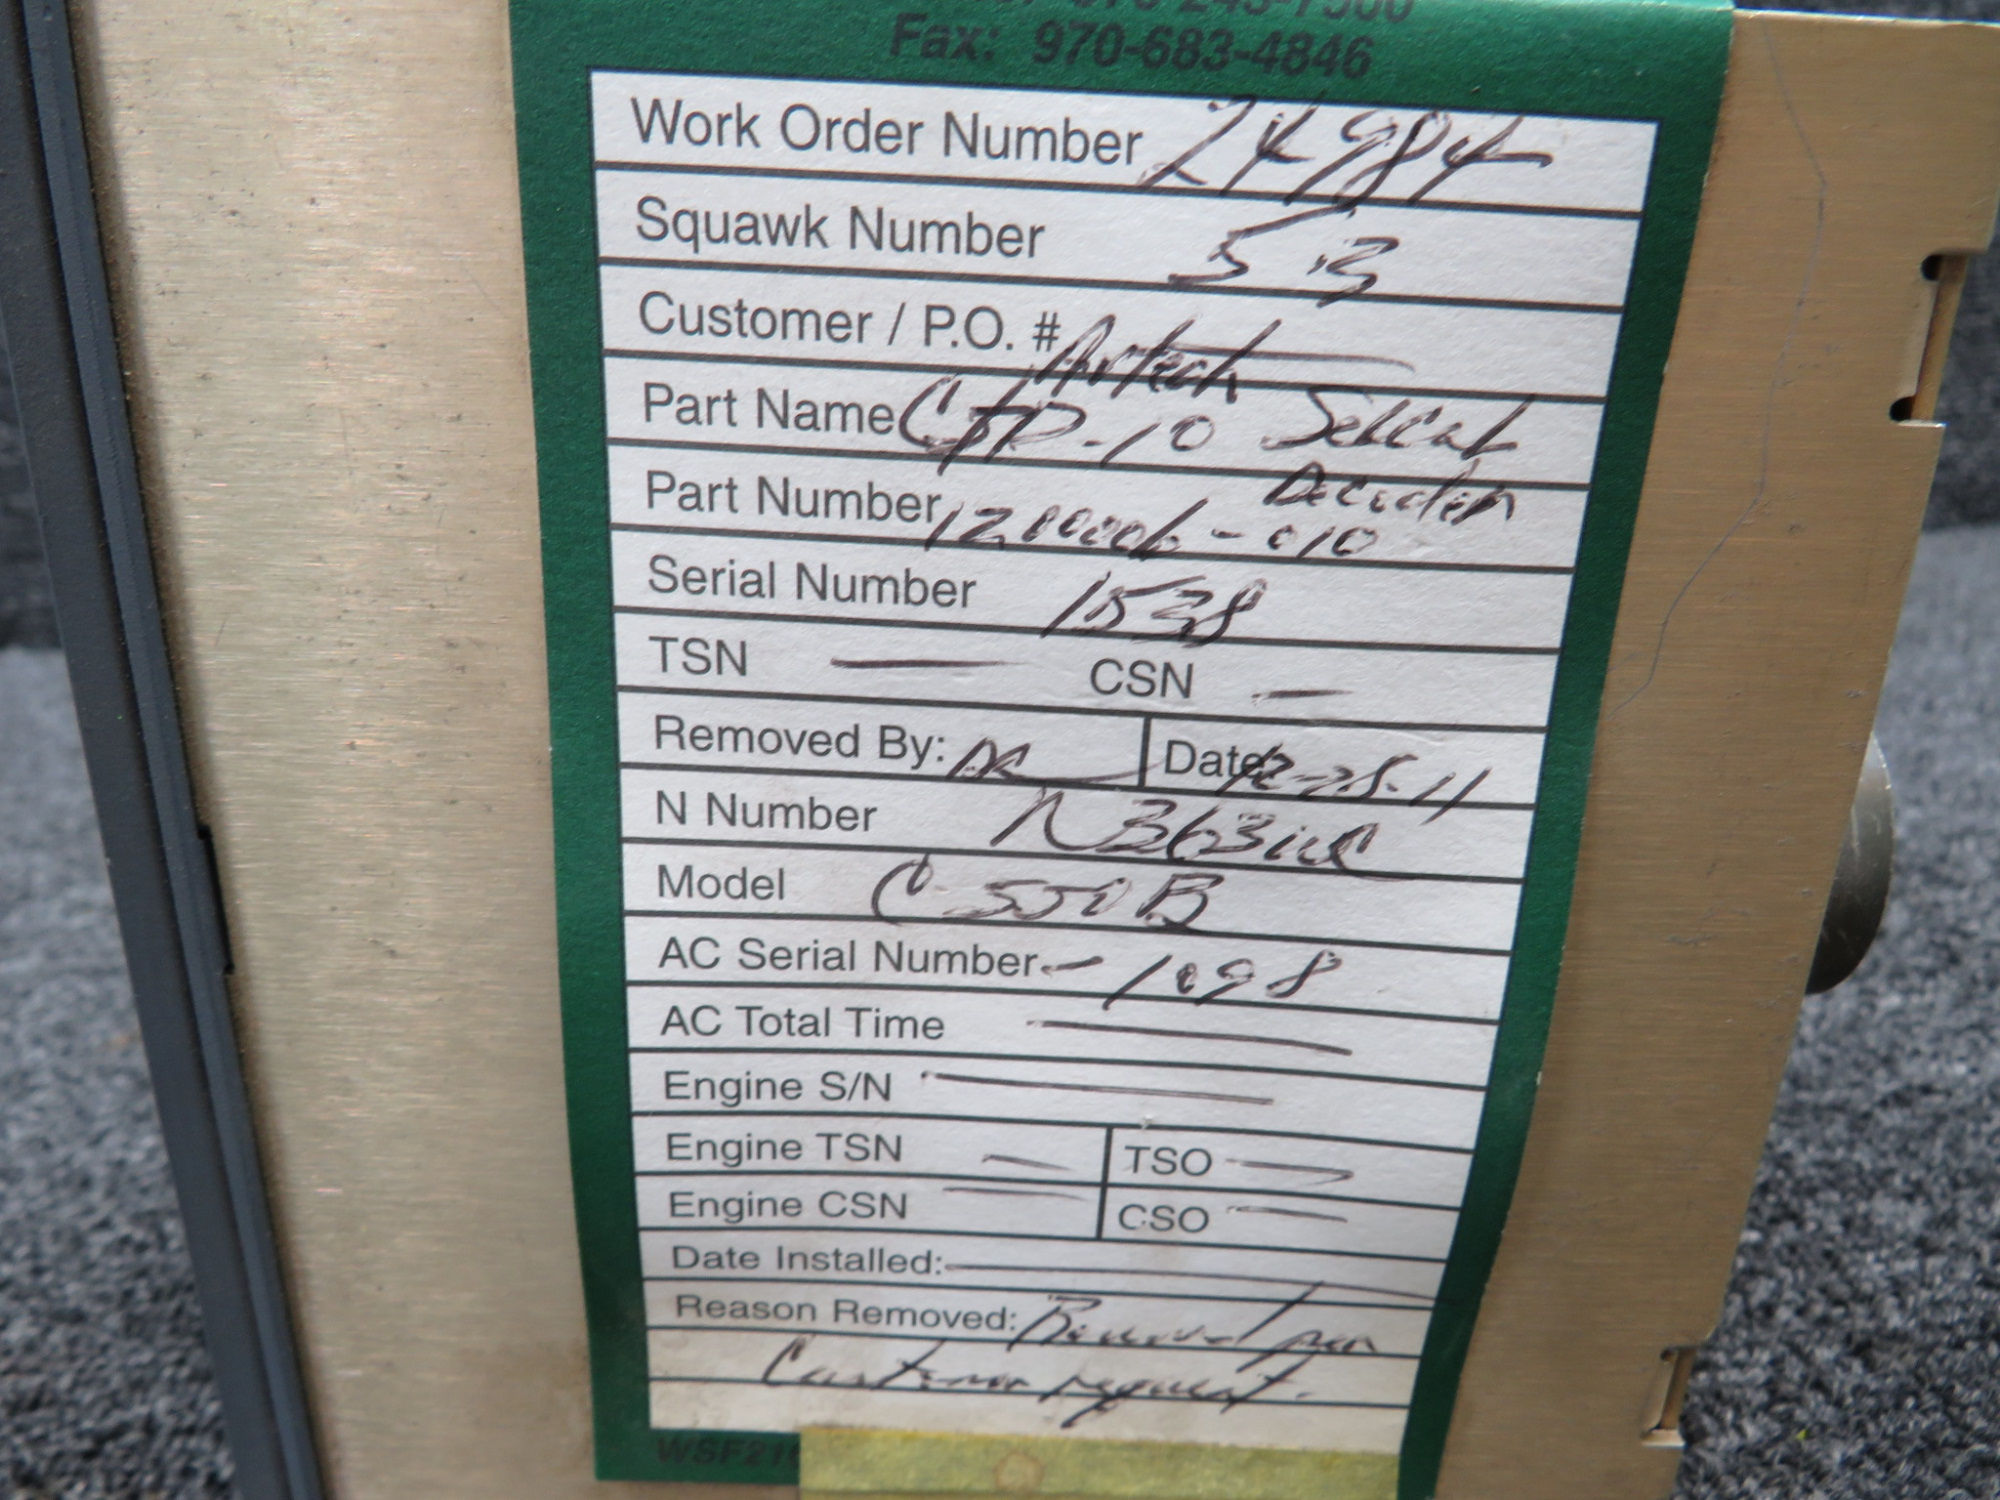 Fax: 970-683-4846
Work Order Number 24984
Squawk Number 53
Customer / P.O. # Airtech
Part Name CTP-10 Selcal
Decoder
Part Number 1200006-010
Serial Number 1538
TSN — CSN —
Removed By: Date: 12-25-11
N Number
Model C 550B
AC Serial Number - 1098
AC Total Time —
Engine S/N —
Engine TSN — TSO —
Engine CSN — CSO —
Date Installed: —
Reason Removed: Removed per
Customer request.